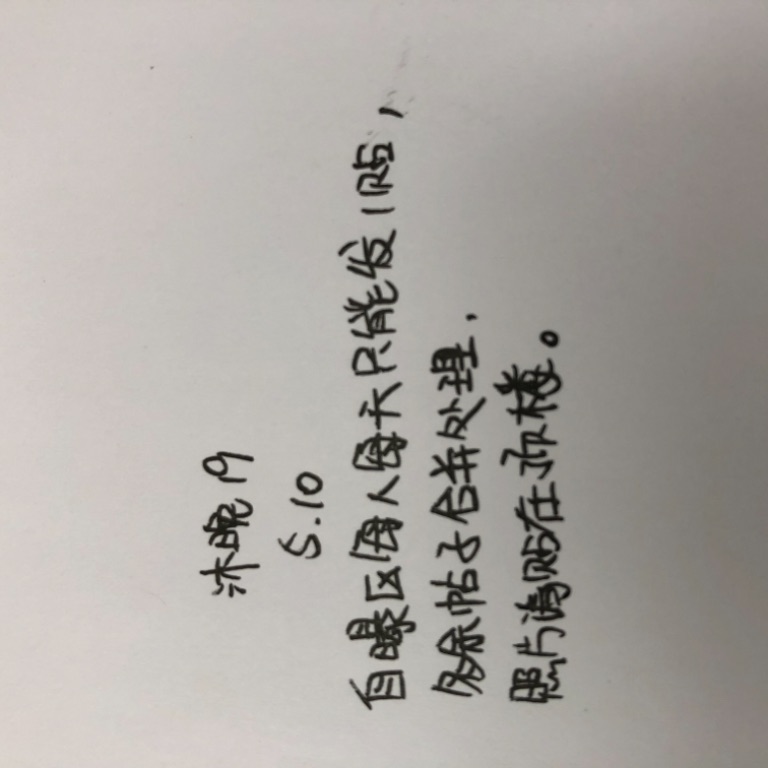 沐晚19
5.10
自曝区每人每天只能发1贴，
多余帖子合并处理．
照片请贴在顶楼。